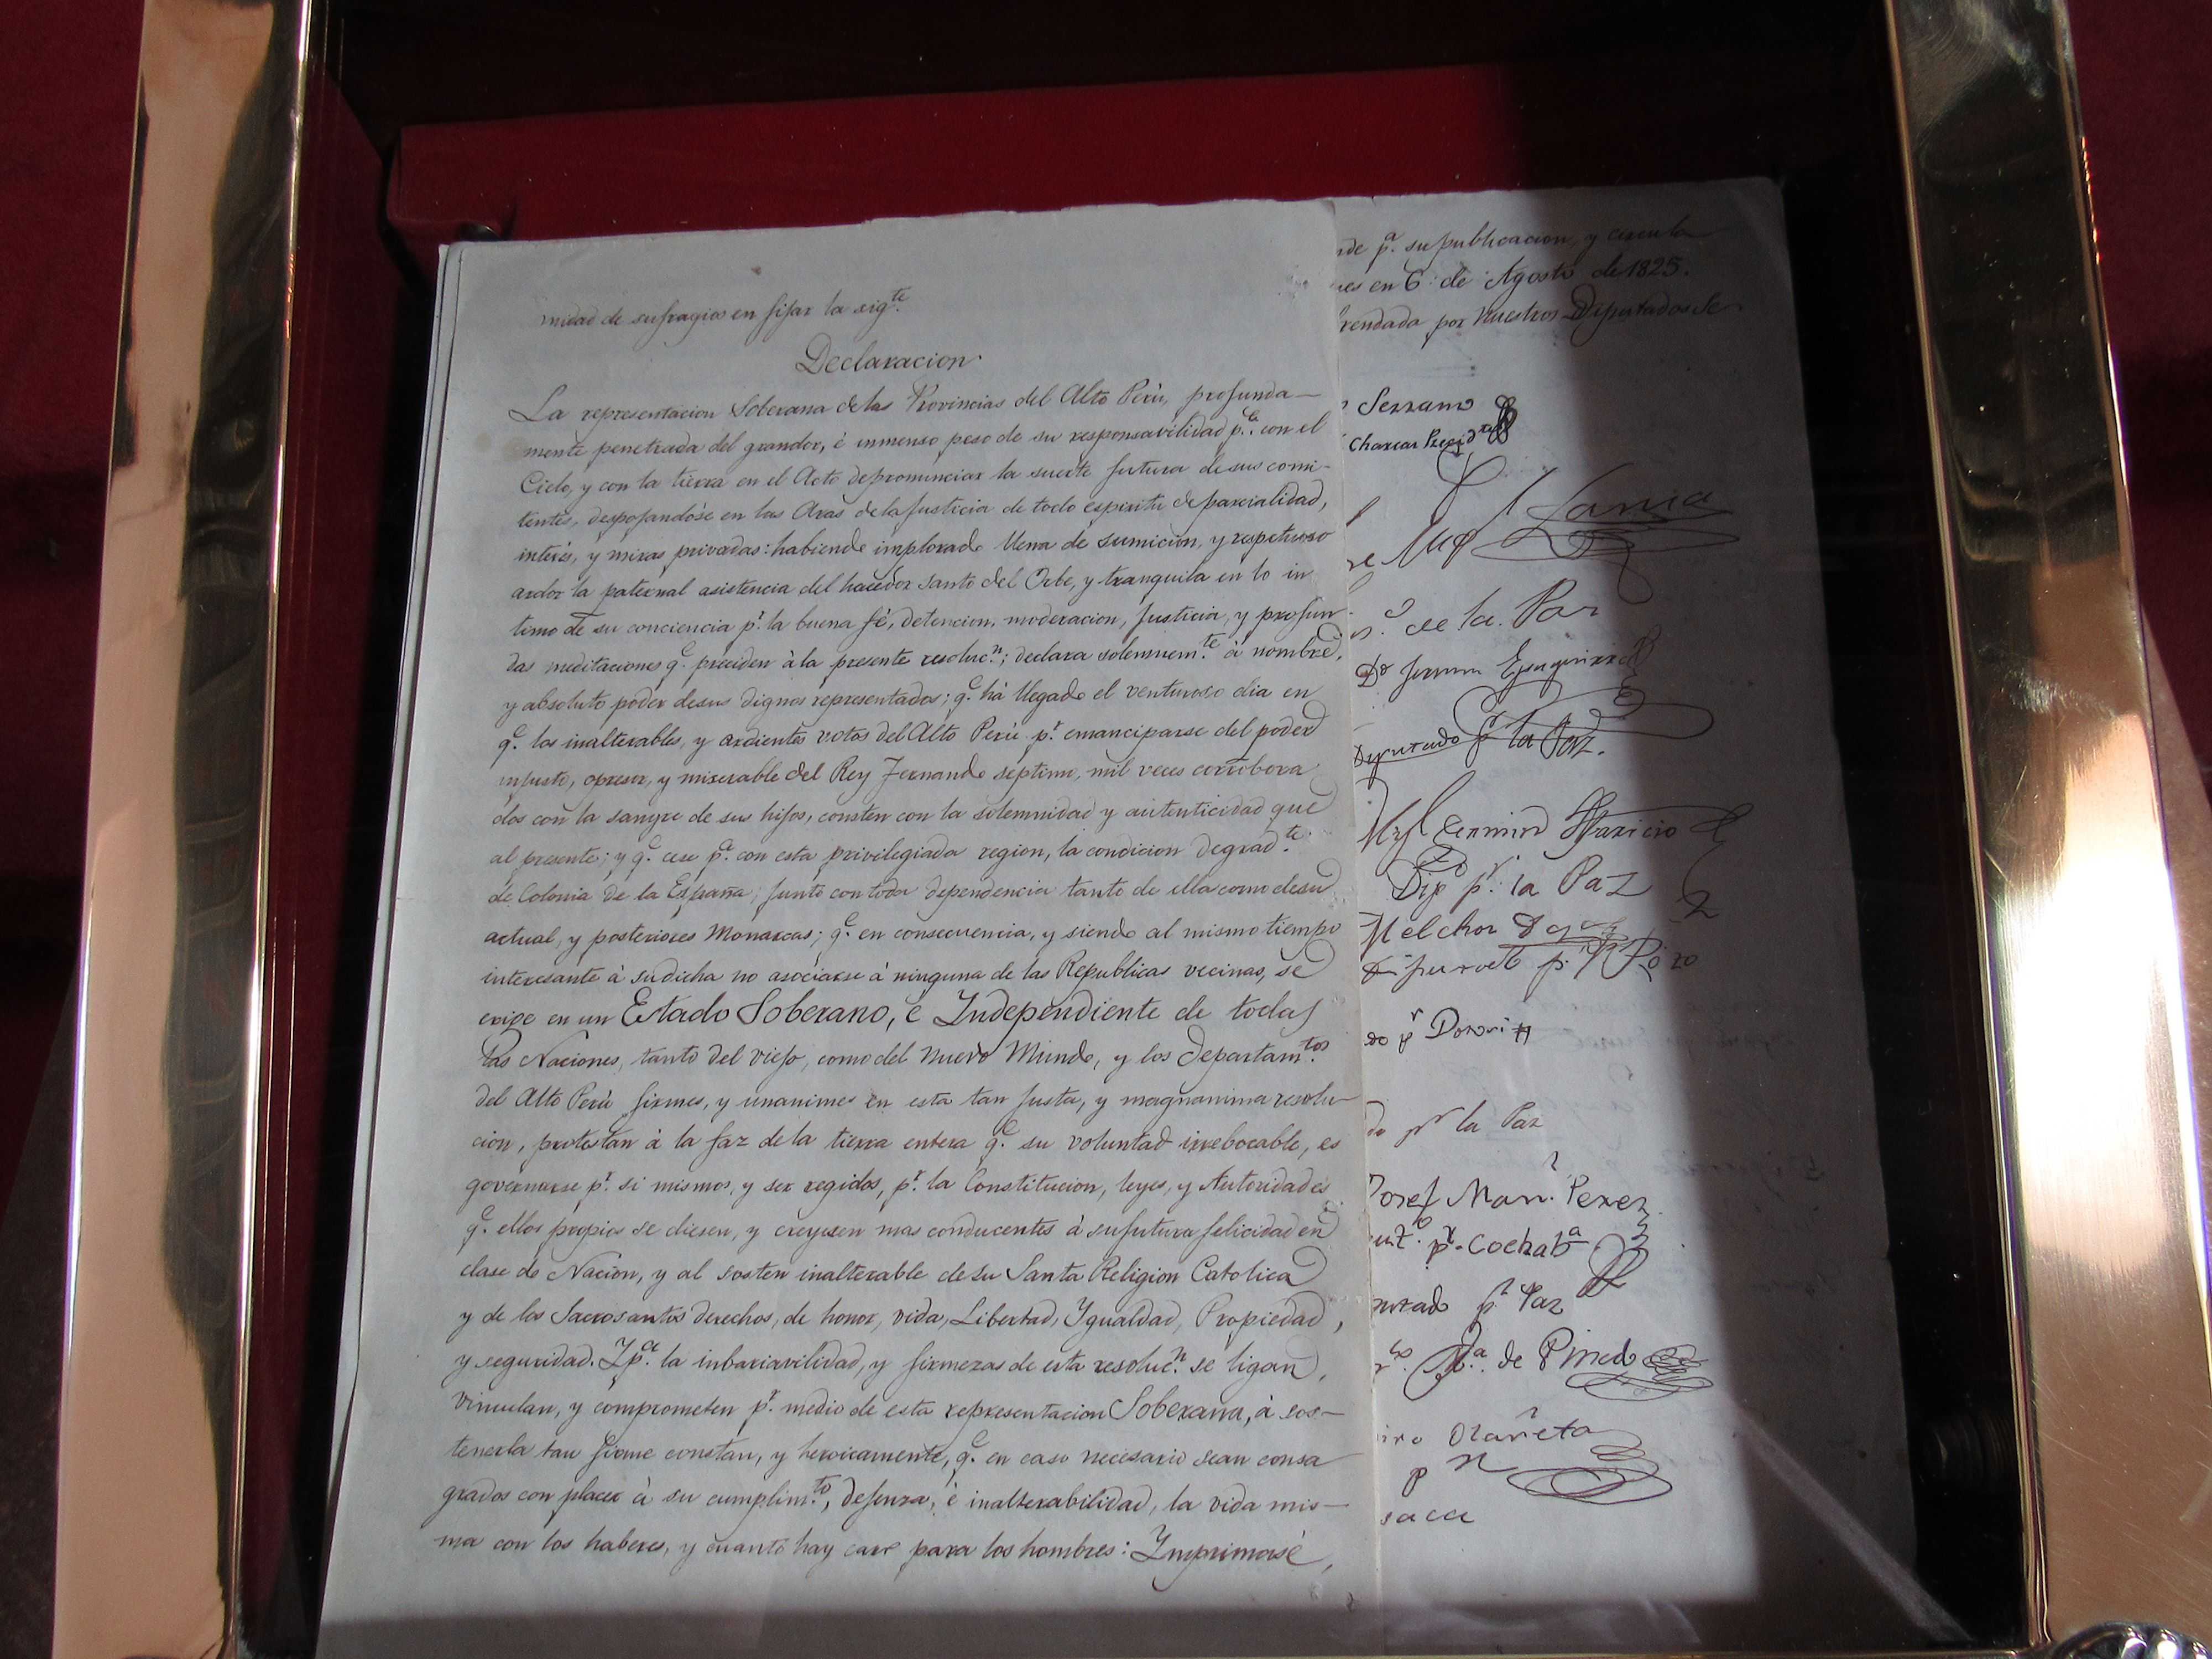 nidad de sufragios en fijar la sig.te
Declaracion
La representacion Soberana de las Provincias del Alto Perú, profunda-
mente penetrada del grandor, é inmenso peso de su responsavilidad p.a con el
Cielo, y con la tierra en el Acto de pronunciar la suerte futura de sus comi-
tentes, despojandóse en las Aras de la Justicia de todo espiritu de parcialidad,
interés, y miras privadas: habiendo implorado llena de sumicion, y respetuoso
ardor la paternal asistencia del hacedor santo del Orbe, y tranquila en lo in
timo de su conciencia p.r la buena fé, detencion, moderacion, Justicia, y profun-
das meditaciones q.e preciden à la presente resoluc.n; declara solemnem.te à nombre,
y absoluto poder de sus dignos representados; q.e há llegado el venturoso dia en
q.e los inalterables, y ardientes votos del Alto Perú p.r emanciparse del poder
injusto, opresor, y miserable del Rey Fernando septimo, mil veces corrobora
dos con la sangre de sus hijos, consten con la solemnidad y autenticidad que
al presente; y q.e cese p.a con esta privilegiada region, la condicion degrad.te
de Colonia de la España, junto con toda dependencia tanto de ella como de su
actual, y posteriores Monarcas; q.e en consecuencia, y siendo al mismo tiempo
interesante à su dicha no asociarse à ninguna de las Republicas vecinas, se
erige en un Estado Soberano, é Independiente de todas
las Naciones, tanto del viejo, como del nuevo Mundo, y los departam.tos
del Alto Perú firmes, y unanimes en esta tan justa, y magnanima resolu-
cion, protestan à la faz de la tierra entera q.e su voluntad irrebocable, es
governarse p.r si mismos, y ser regidos, p.r la Constitucion, leyes, y Autoridades
q.e ellos propios se diesen, y creyesen mas conducentes à su futura felicidad en
clase de Nacion, y al sosten inalterable de su Santa Religion Catolica
y de los Sacrosantos derechos, de honor, vida, Libertad, Ygualdad, Propiedad,
y seguridad. Y p.a la inbariavilidad, y firmezas de esta resoluc.n se ligan,
vinculan, y comprometen p.r medio de esta representacion Soberana, à sos-
tenerla tan firme constan, y heroicamente, q.e en caso necesario sean consa
grados con placer à su cumplim.to, defenza, é inalterabilidad, la vida mis-
ma con los haberes, y cuanto hay caro para los hombres: Ymprimasé,
nde p.a su publicacion, y circula
es en 6 de Agosto de 1825.
rendada por Nuestros Diputados Se
Serrano
Charcas Presid.te
de la Paz
Diputado p.r la Paz.
Fermin Aparicio
Dip.do p.r la Paz
Melchor
p.r
do p.r Potosi
do p.r la Paz
Josef Man.l Perez
p.r Cochab.a
utado p.r Paz
M.a de Pinedo
iro Olañeta
p.r
saca